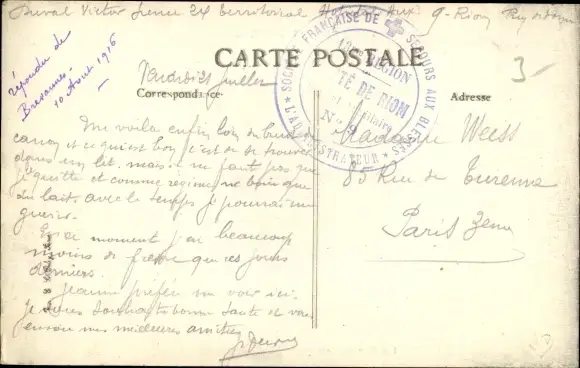 Duval Victor 24 territorial Hôpital Aux. 9 - Riom Puy de Dôme
répondu de
Bresannes
10 Août 1916
CARTE POSTALE
SOCIÉTÉ FRANÇAISE DE SECOURS AUX BLESSÉS
13e RÉGION
TÉ DE RIOM
No 9
L'ADMINISTRATEUR
3-
Vendredi juillet
Correspondance
Adresse
Me voilà enfin loin du bruit du
canon et ce qui est bon c'est de se trouver
dans un lit. mais il ne faut pas que
je quitte et comme régime ne bois que
du lait. avec le temps je pourrai me
guérir.
En ce moment j'ai beaucoup
moins de fièvre que ces jours
derniers.
Jeanne préfère me voir ici.
Je vous souhaite bonne santé et vous
envoie mes meilleures amitiés
Madame Weiss
83 Rue de Turenne
Paris 3em